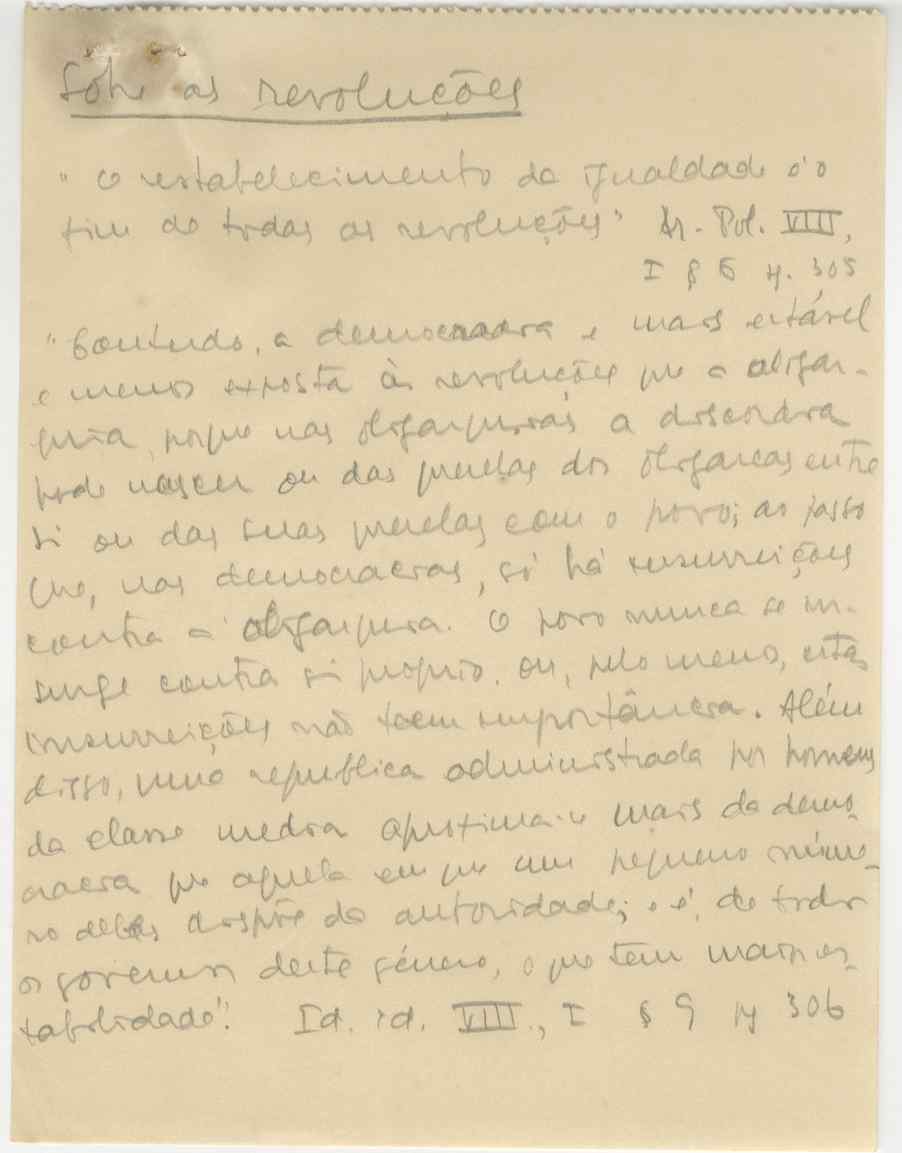 Sôbre as revoluções
"O estabelecimento da igualdade é o
fim de todas as revoluções" Ar. Pol. VIII,
I § 6 p. 305
"Contudo, a democracia é mais estável
e menos exposta às revoluções que a oligar-
quia, porque nas oligarquias a discórdia
pode nascer ou das querelas dos oligarcas entre
si ou das suas querelas com o povo; ao passo
que, nas democracias, só há insurreições
contra a oligarquia. O povo nunca se in-
surge contra si próprio, ou, pelo menos, estas
insurreições não teem importância. Além
disso, uma republica administrada por homens
da classe media aproxima-se mais da demo-
cracia que aquela em que um pequeno núme-
ro deles dispõe da autoridade; e é, de todos
os governos deste género, o que tem mais es-
tabilidade". Id. id. VIII, I § 9 p 306